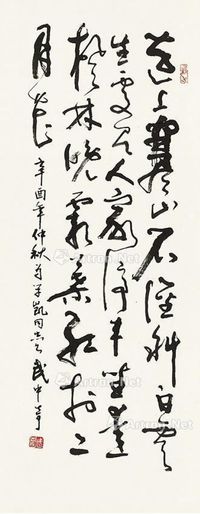 远上寒山石径斜白云
生处有人家停车坐爱
枫林晚霜叶红于二
月花
辛酉年仲秋为学凯同志武中奇